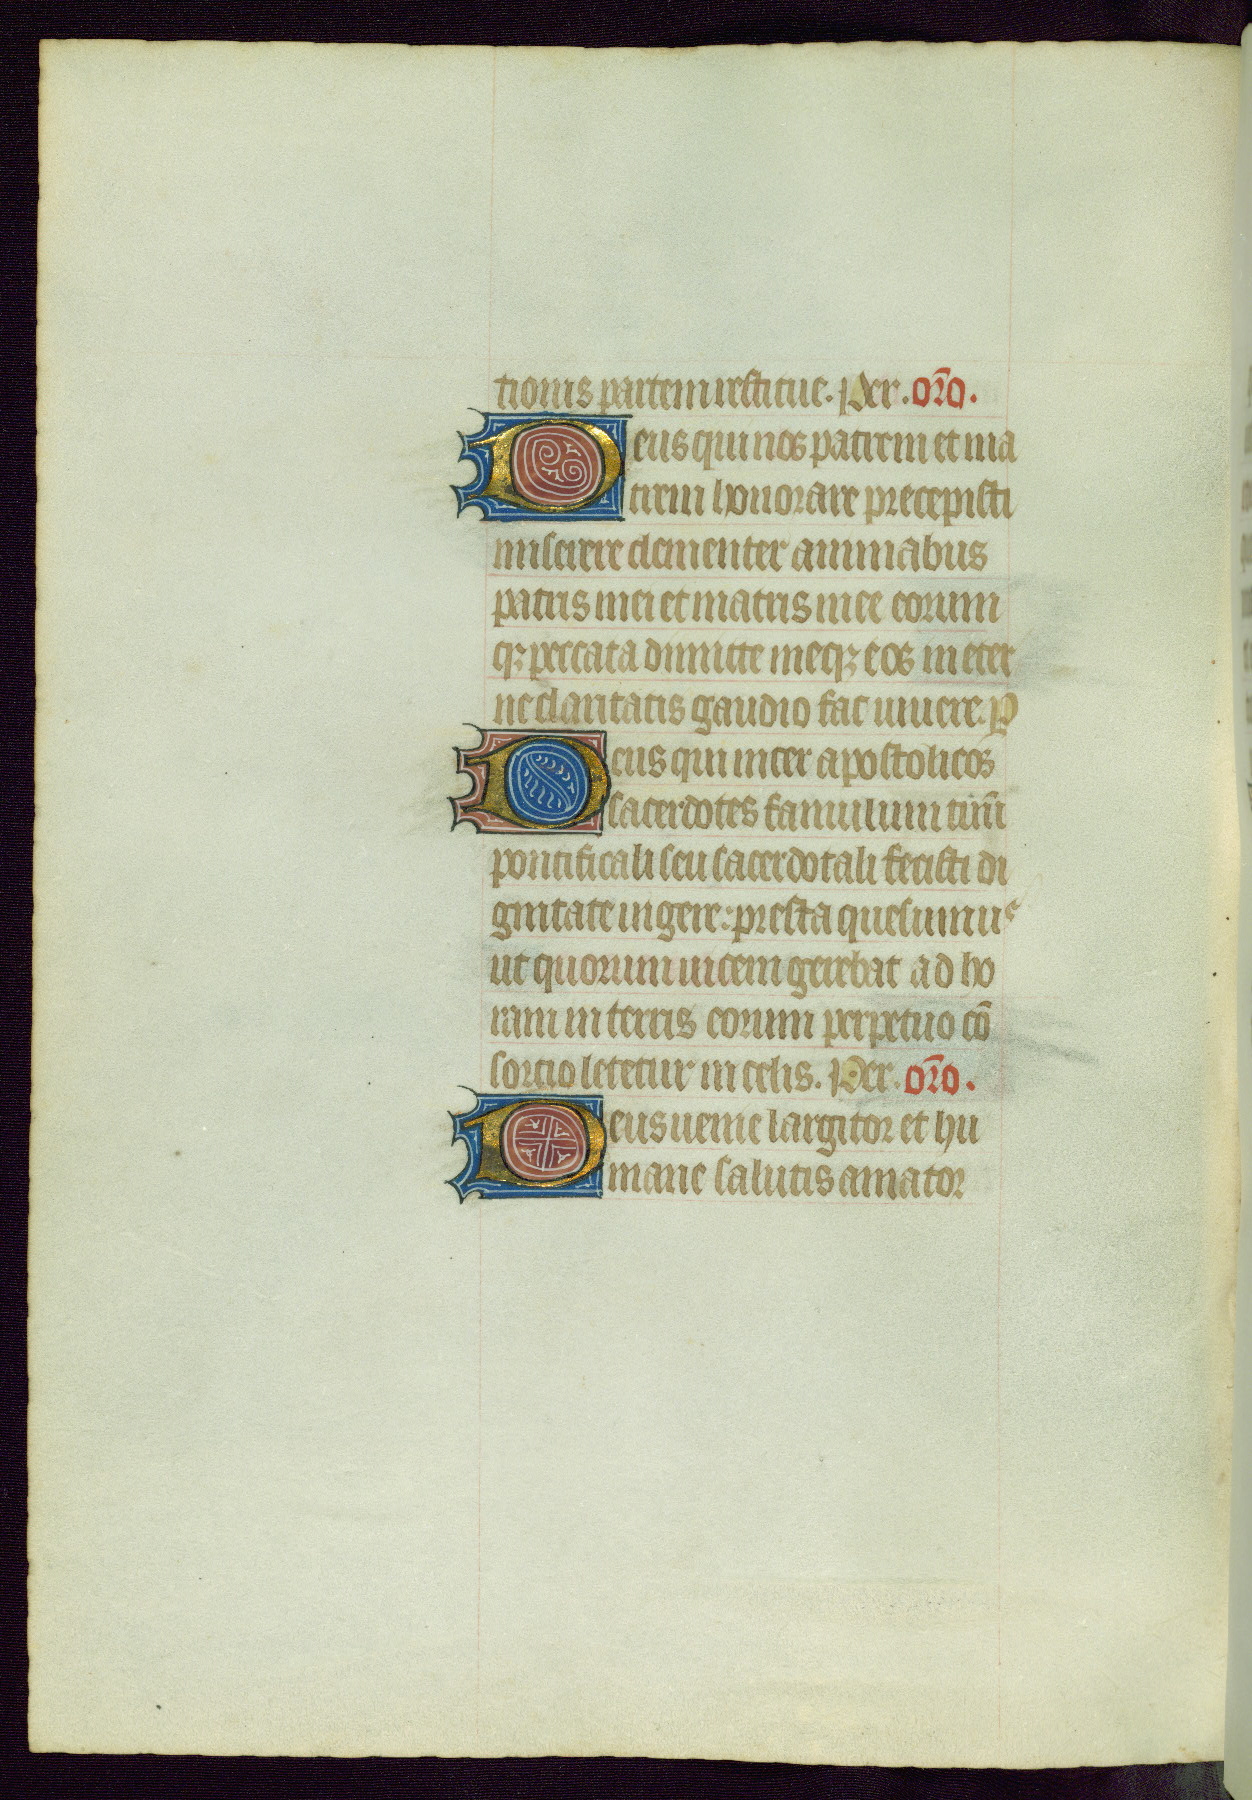 tionis partem restitue. Per. oro̅.
Deus qui nos patrem et ma
trem honorare precepisti
miserere clementer animabus
patris mei et matris mee eorum
qꝫ peccata dimitte meqꝫ eos in eter
ne claritatis gaudio fac uiuere. P
Deus qui inter apostolicos
sacerdotes famulum tuu̅
pontificali seu sacerdotali fecisti di
gnitate uigere: presta quesumus
ut quorum uicem gerebat ad ho
ram in terris eorum perpetuo co̅
sortio letetur in celis. Per. oro̅.
Deus uenie largitor et hu
mane salutis amator